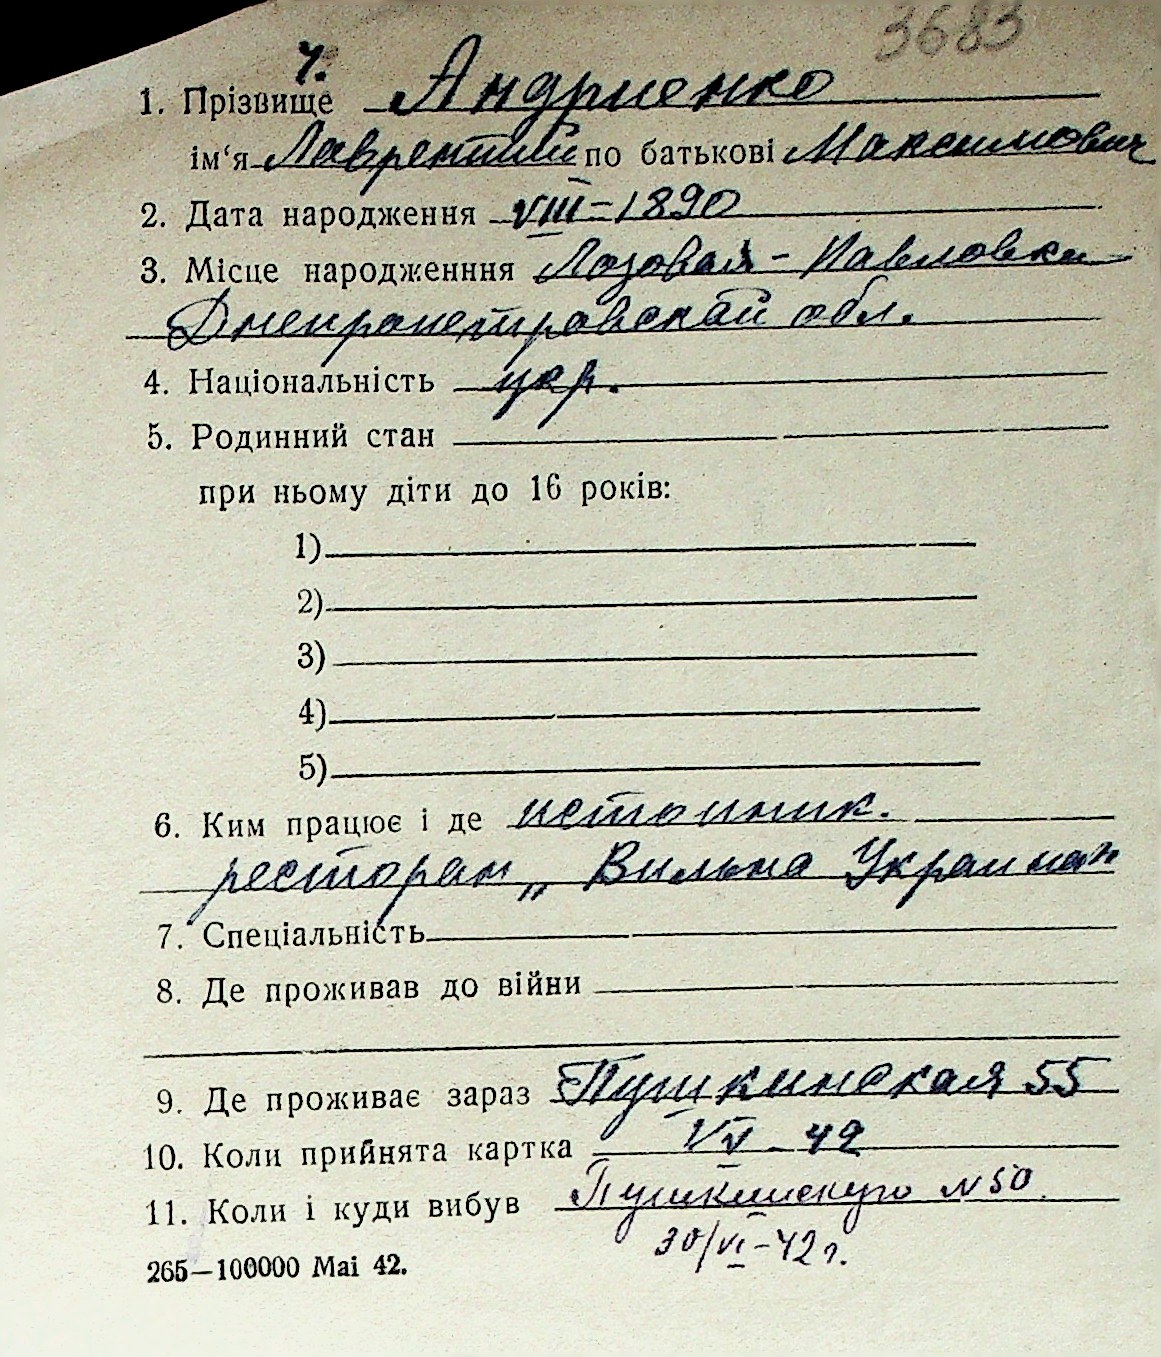 3683
4.
1. Прізвище Андриенко
ім‘я Лаврентий по батькові Максимович
2. Дата народження VIII–1890
3. Місце народженння Лозовая – Павловка
Днепропетровской обл.
4. Національність укр.
5. Родинний стан
при ньому діти до 16 років:
1)
2)
3)
4)
5)
6. Ким працює і де истопник.
ресторан „Вильна Украина"
7. Спеціальність
8. Де проживав до війни
9. Де проживає зараз Пушкинская 55
10. Коли прийнята картка VI – 42
11. Коли і куди вибув Пушкинскую N 50
30/VI–42 г.
265—100000 Mai 42.